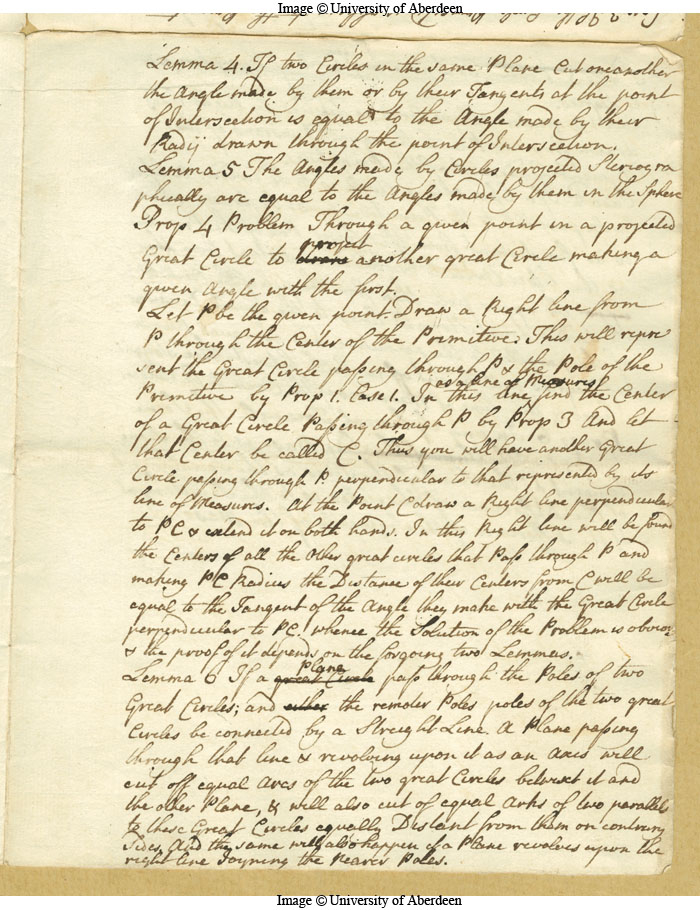 Image © University of Aberdeen
Lemma 4. If two Circles in the same Plane Cut one another
the Angle made by them or by their Tangents at the point
of Intersection is equal to the Angle made by their
Radij drawn through the point of Intersection.
Lemma 5 The Angles made by Circles projected Steriogra
phically are equal to the Angles made by them in the Sphere
Prop 4 Problem Through a given point in a projected
Great Circle to project another great Circle making a
given Angle with the first.
Let P be the given point. Draw a Right line from
P through the Center of the Primitive. This will repre
sent the Great Circle passing through P & the Pole of the
Primitive by Prop 1. Case 1. In this line as a line of Measures find the Center
of a Great Circle Passing through P by Prop 3 And let
that Center be called C. Thus you will have another Great
Circle passing through P perpendicular to that represented by its
line of Measures. At the Point C draw a Right line perpendicular
to PC & extend it on both hands. In this Right line will be found
the Centers of all the other great circles that Pass through P and
making PC Radius the Distance of their Centers from C will be
equal to the Tangent of the Angle they make with the Great Circle
perpendicular to PC. whence the Solution of the Problem is obvious
& the proof of it depends on the forgoing two Lemmas.
Lemma 6 If a great Circle Plane pass through the Poles of two
Great Circles; and either the remoter Poles poles of the two great
Circles be connected by a Streight Line. A Plane passing
through that line & revolving upon it as an Axis will
cut off equal Arcs of the two great Circles betwixt it and
the other Plane, & will also cut of equal Arks of two parallels
to these Great Circles equally Distant from them on contrary
sides. And the same will also happen if a Plane revolves upon the
right line Joyning the Nearer Poles.
Image © University of Aberdeen